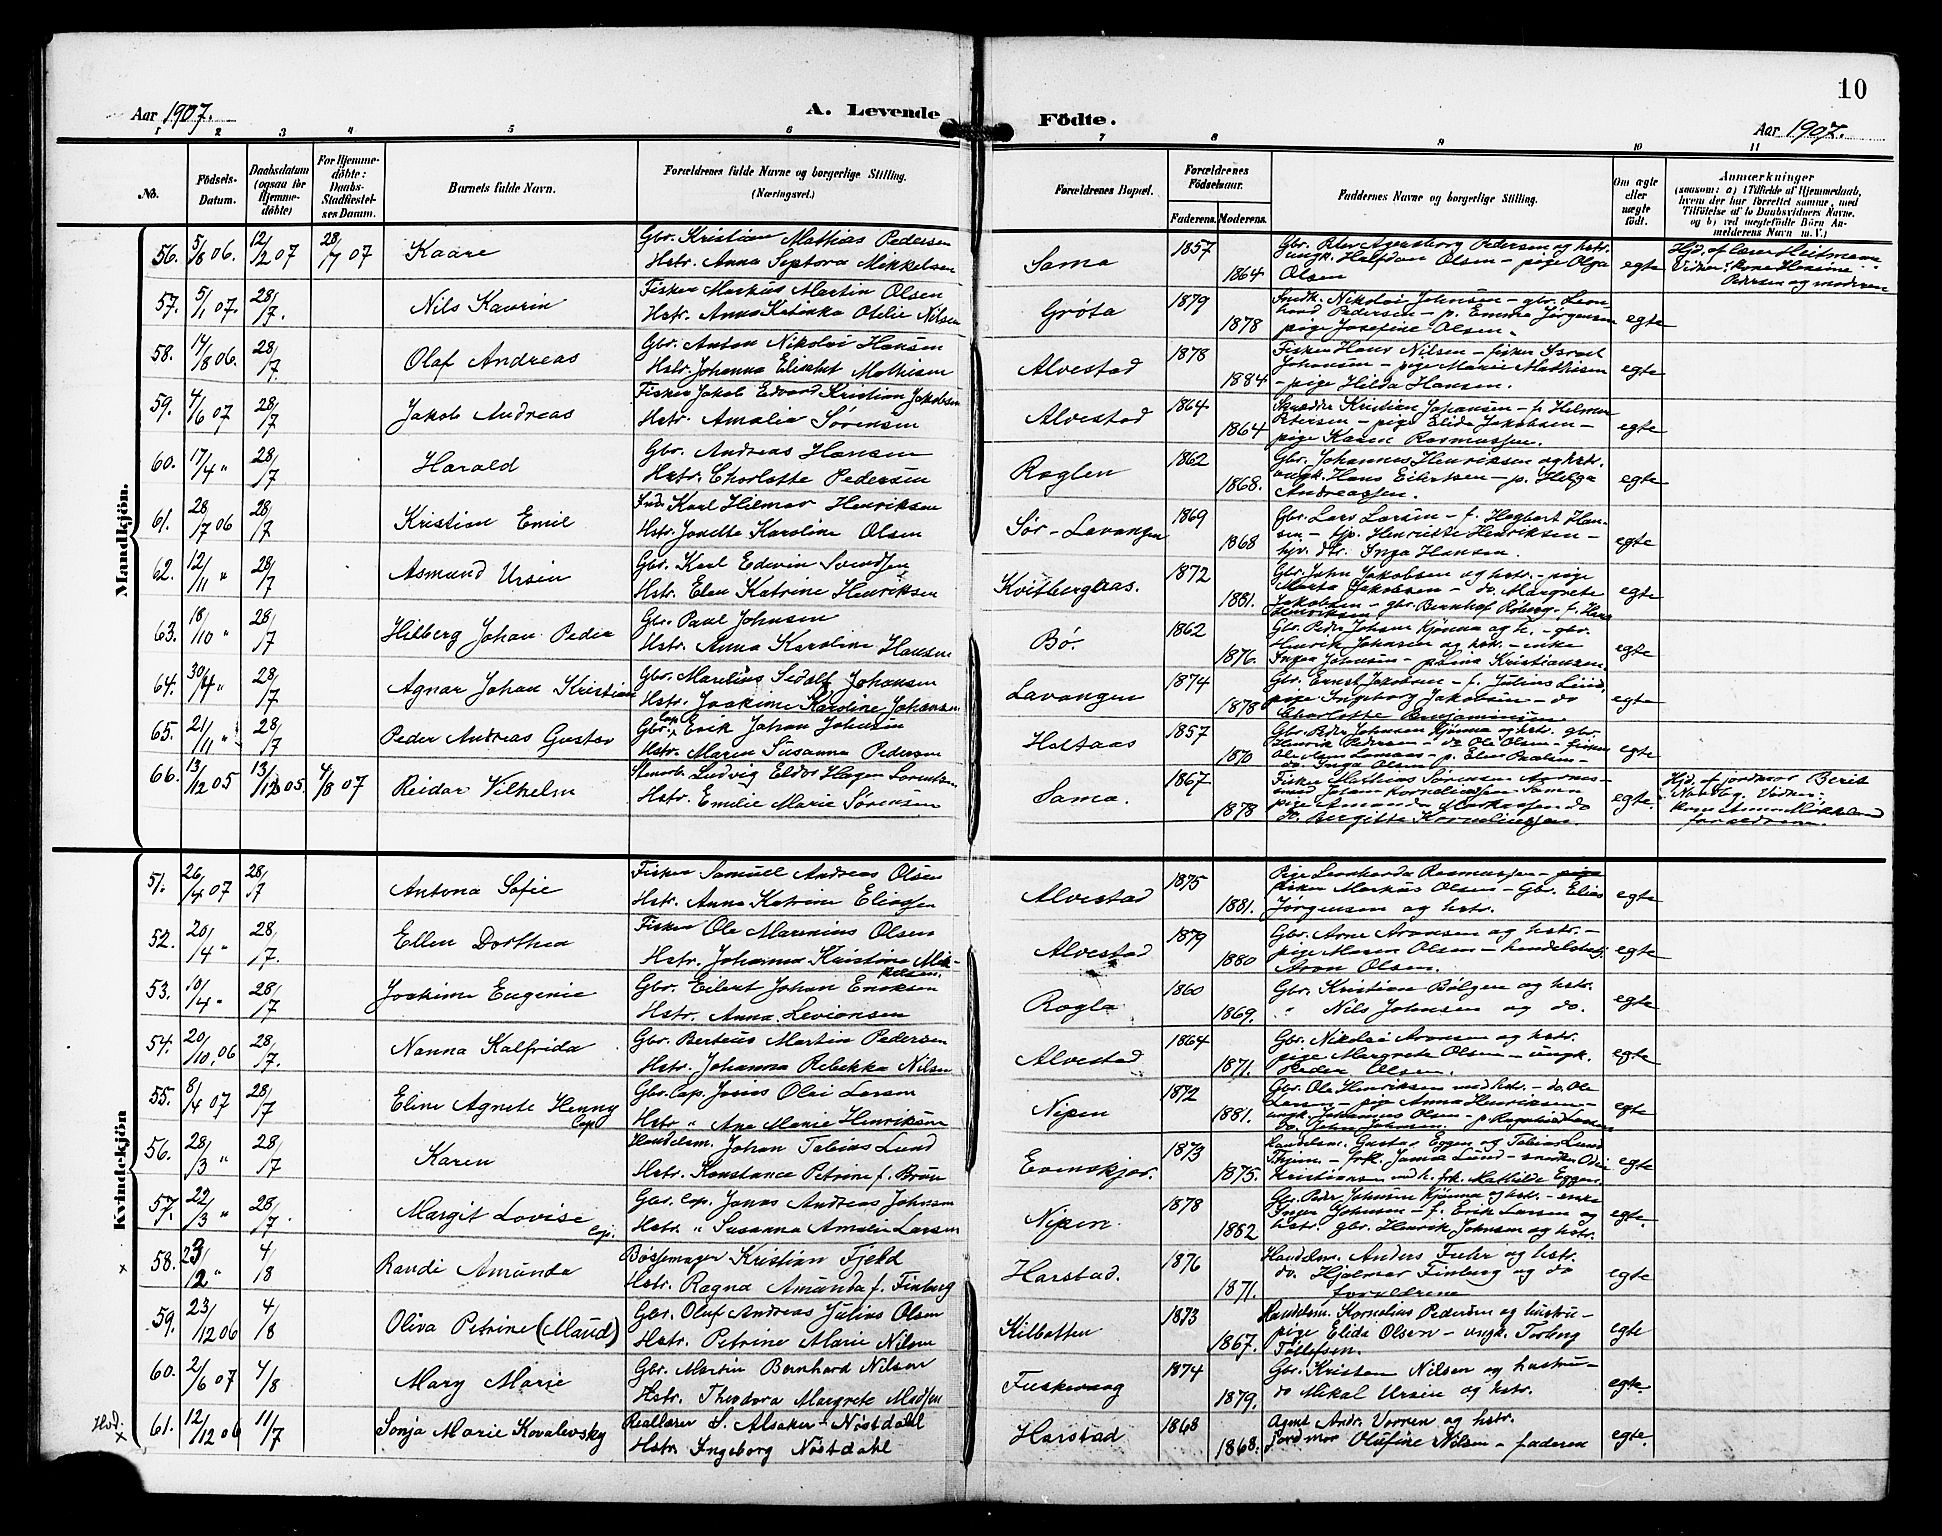 10
Aar 1907. A. Levende Fødte. Aar 1907.
1 2 3 4 5 6 7 8 9 10 11
No. Fødsels-Datum. Daabsdatum (ogsaa for Hjemmedøbte) For Hjemmedøbte: Daabs-Stadfæstelses Datum. Barnets fulde Navn. Forældrenes fulde Navne og borgerlige Stilling. (Næringsvei.) Forældrenes Bopæl. Forældrenes Fødselsaar. Faderens. Moderens. Faddernes Navne og borgerlige Stilling. Om ægte eller uægte født. Anmærkninger (saasom: a) i Tilfælde af Hjemmedaab, hvem der har forrettet samme, med Tilføielse af to Daabsvidners Navne, og b) ved uægtefødte Børn Anmelderens Navn m. V.)
Mandkjön.
56. 5/8 06. 12/2 07 28/7 07 Kaare Gbr. Kristian Mathias Pedersen Sama 1857 Gbr. Peter Agensborg Pedersen og hstr.
Hstr. Anna Septora Mikkelsen 1864 ungk. Halfdan Olsen – pige Olga Olsen egte
57. 5/1 07. 28/7. Nils Kavrin Fisker Markus Martin Olsen Grøta 1879 Smdk. Nikolai Johnsen – gbr. Leonhard Pedersen – p. Emma Jørgensen
Hstr. Anna Katinka Otelie Nilsen 1878 pige Josefine Olsen. egte
58. 14/8 06. 28/7 Olaf Andreas Gbr. Anton Nikolai Hansen Alvestad 1878 Fisker Hans Nilsen – fisker Israel Johansen – pige Marie Mathisen
Hstr. Johanna Elisabet Mathisen 1884 – pige Hilda Hansen. egte
59. 4/6 07 28/7 Jakob Andreas Fisker Jakob Edvard Kristian Jakobsen Alvestad 1864 Skrædder Kristian Johansen – f. Hilmar Petersen – pige Elida Jakobsen –
Hstr. Amalia Sørensen 1864 pige Karen Rasmussen. egte
60. 17/4 " 28/7 Harald Gbr. Andreas Hansen Roglen 1862 Gbr. Johannes Henriksen og hstr.
Hstr. Charlotte Pedersen 1868. ungk. Hans Eilertsen – p. Helga Andreassen. egte
61. 28/7 06 28/7 Kristian Emil Inds. Karl Hilmar Henriksen Sør-Lavangen 1869 Gbr. Lars Larsen – f. Hagbart Hansen – tjp. Henriette Henriksen –
Hstr. Jonette Karoline Olsen 1868 hjv. dtr. Inga Hansen. egte
62. 12/11 " 28/7 Asmund Ursin Gbr. Karl Edvin Svendsen Kvitbergaas. 1872 Gbr. John Jakobsen og hstr. – pige Marta Jakobsen – do Margrete
Hstr. Elen Katrine Henriksen 1881. Jakobsen – gbr. Bernhof Røberg – f. Hans Henriksen egte
63. 18/10 " 28/7 Hilberg Johan Peder Gbr. Paul Johnsen Bø. 1862 Gbr. Peder Johnsen Kjønna og h. – gbr. Henrik Johnsen og hstr. – enke
Hstr. Anna Karoline Hansen 1876. Inger Johnsen – p. Lina Kristiansen egte
64. 30/4 " 28/7 Agnar Johan Kristian Gbr. Marelius Sedolf Johansen Lavangen 1874 Gbr. Ernst Jakobsen – f. Julius Lind, pige Ingeborg Jakobsen – do
Hstr. Joakime Karoline Johansen 1878 Charlotte Benjaminsen egte
65. 21/11 " 28/7 Peder Andreas Gustav Gbr. Erik Johan Johnsen Holtaas 1857 Gbr. Peder Johnsen Kjønna og hstr. gbr. Henrik Pedersen – do Ole Olsen – fisker
Hstr. Maren Susanna Pedersen 1870 do. Inga Olsen – p. Elen Paulin – egte
66. 13/12 05 13/12 05. 4/8 07 Reidar Vilhelm Stenarb. Ludvig Eldor Hagen Lorentsen Sama. 1867 Fisker Mathias Sørensen Aarnes – smed Johan Korneliussen Sama
Hstr. Emilie Marie Sørensen 1878 pige Amanda Markussen do do. Bergitte Korneliussen. egte.
Kvindekjön
51. 26/4 07 28/7 Antona Sofie Fisker Samuel Andreas Olsen Alvestad 1875 Pige Leonharda Rasmussen – pige fisker Markus Olsen – Gbr. Elias
Hstr. Anna Katrine Eliassen 1881. Jørgensen og hstr. egte
52. 20/4 " 28/7. Ellen Dorthea Fisker Ole Marenius Olsen Alvestad 1879 Gbr. Arne Aronsen og hstr. – pige Maren Olsen – handelsbetj.
Hstr. Johanna Kristine Mikkelsen. 1880 Aron Olsen. egte
53. 10/4 " 28/7 Joakime Eugenie Gbr. Eilert Johan Enoksen Rogla 1860 Gbr. Kristian Bølgen og hstr.
Hstr. Anna Levionsen 1869. " Nils Johnsen og do. egte
54. 20/10. 06 28/7. Nanna Kalfrida Gbr. Berteus Martin Pedersen Alvestad 1864 Gbr. Nikolai Aronsen og hstr.
Hstr. Johanna Rebekka Nilsen 1871. pige Margrete Olsen – ungk. Peder Olsen. egte
55. 8/4 07 28/7 Eline Agnete Henny Gbr. Cap. Josias Olai Larsen Nipen 1872 Gbr. Ole Henriksen med hstr. – do. Ole Larsen – pige Anna Henriksen –
Cap. Hstr. " Ane Marie Henriksen 1881. ungk. Johannes Olsen – p. Ragnhild Larsen do. John Johnsen. egte
56. 28/3 " 28/7 Karen Handelsm. Johan Tobias Lund Evenskjær. 1873 Handelsm. Gustav Eggen og Tobias Lund
Hstr. Konstance Petrine f. Bruu 1875. Thjem – frk. Jama Lund – snedker Odin Kristiansen med h. frk. Mathilde Eggen. egte
57. 22/3 " 28/7. Margit Lovise Gbr. Cap. Jonas Andreas Johnsen Nipen. 1878 Gbr. Peder Johnsen Kjønna og hstr. – enke
Cap. Hstr. " Susanna Amalie Larsen 1882 Inger Johnsen – f. Erik Larsen og hstr. gbr. Henrik Johnsen og hstr. egte.
x 58. 23/12 " 4/8 Randi Amunda Bøssemager Kristian Fjeld Harstad. 1876 Handelsm. Anders Fuhr og hstr.
Hstr. Ragna Amunda f. Finberg 1871. do. Hjalmar Finberg og do forældrene egte
59. 23/12 06 4/8 Oliva Petrine (Maud) Gbr. Oluf Andreas Julius Olsen Kilbotten 1873 Handelsm. Kornelius Pedersen og hustru –
Hstr. Petrine Marie Nilsen 1867. pige Elida Olsen – ungk. Torberg Tollefsen. egte
60. 2/6 07 4/8 Mary Marie Gbr. Martin Bernhard Nilsen Fuskevaag 1874 Gbr. Kristen Nilsen og hustru –
Hstr. Theodora Margrete Madsen 1879. do Mikal Ursin og hstr. egte
x 61. 12/12 06 11/7 Sonja Marie Kovalevsky Reallærer S. Alsaker-Nøstdahl Harstad 1868 Agent Andr. Vornen og hstr.
Hstr. Ingeborg Nøstdahl 1868. Jordmor Olufine Nilsen – faderen egte.